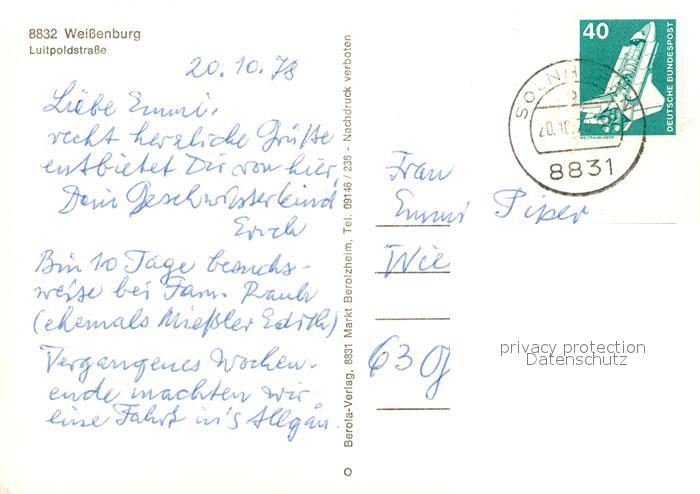 8832 Weißenburg
Luitpoldstraße
20.10.78
Liebe Emmi,
recht herzliche Grüße
entbietet Dir von hier,
Dein Geschwisterkind
Erich
Bin 10 Tage besuchs-
weise bei Fam. Raub
(ehemals Mießler Edith)
Vergangenes Wochen-
ende machten wir
eine Fahrt in's Allgäu.
Berola-Verlag, 8831 Markt Berolzheim, Tel. 09146/236 - Nachdruck verboten
40
DEUTSCHE BUNDESPOST
WELTRAUMLABOR
SOLNH
20.10.7
8831
Frau
Emmi Piper
Wie
630
privacy protection
Datenschutz